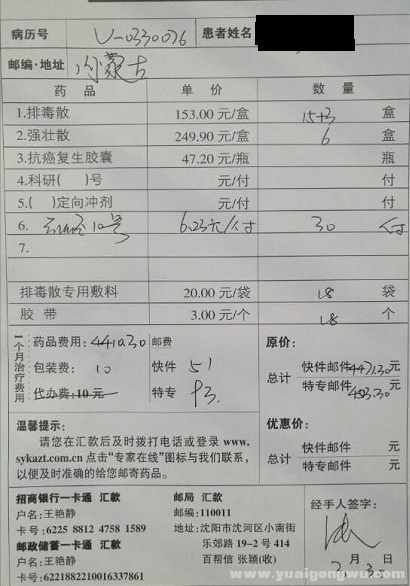 病历号 V-0330076 患者姓名
邮编·地址 内蒙古
药品 单价 数量
1.排毒散 153.00 元/盒 15+3 盒
2.强壮散 249.90 元/盒 6 盒
3.抗癌复生胶囊 47.20 元/瓶 瓶
4.科研( )号 元/付 付
5.( )定向冲剂 元/付 付
6. 10号 6.23元/付 30 付
7.
排毒散专用敷料 20.00 元/袋 18 袋
胶带 3.00 元/个 18 个
1个月治疗费用
药品费用:4410.30 邮费
包装费:10 快件 51
代办费:10元 特专 93.
原价:
总计 快件邮件4471.30元
特专邮件4513.30元
温馨提示:
请您在汇款后及时拨打电话或登录 www.
sykazt.com.cn 点击“专家在线”图标与我们联系,
以便及时准确的给您邮寄药品。
优惠价:
总计 快件邮件 元
特专邮件 元
招商银行一卡通 汇款
户名:王艳静
卡号:6225 8812 4758 1589
邮政储蓄一卡通 汇款
户名:王艳静
卡号:6221882210016337861
邮局 汇款
邮编:110011
地址:沈阳市沈河区小南街
乐郊路 19-2 号 414
百帮信 张颖(收)
经手人签字:
3 月 3 日
www.yuaigongwu.com